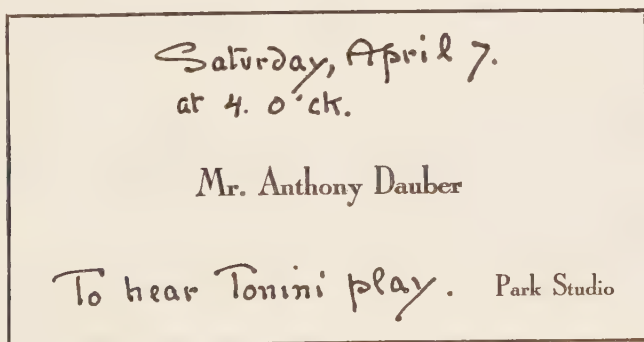 Saturday, April 7.
at 4. o'ck.
Mr. Anthony Dauber
To hear Tonini play. Park Studio